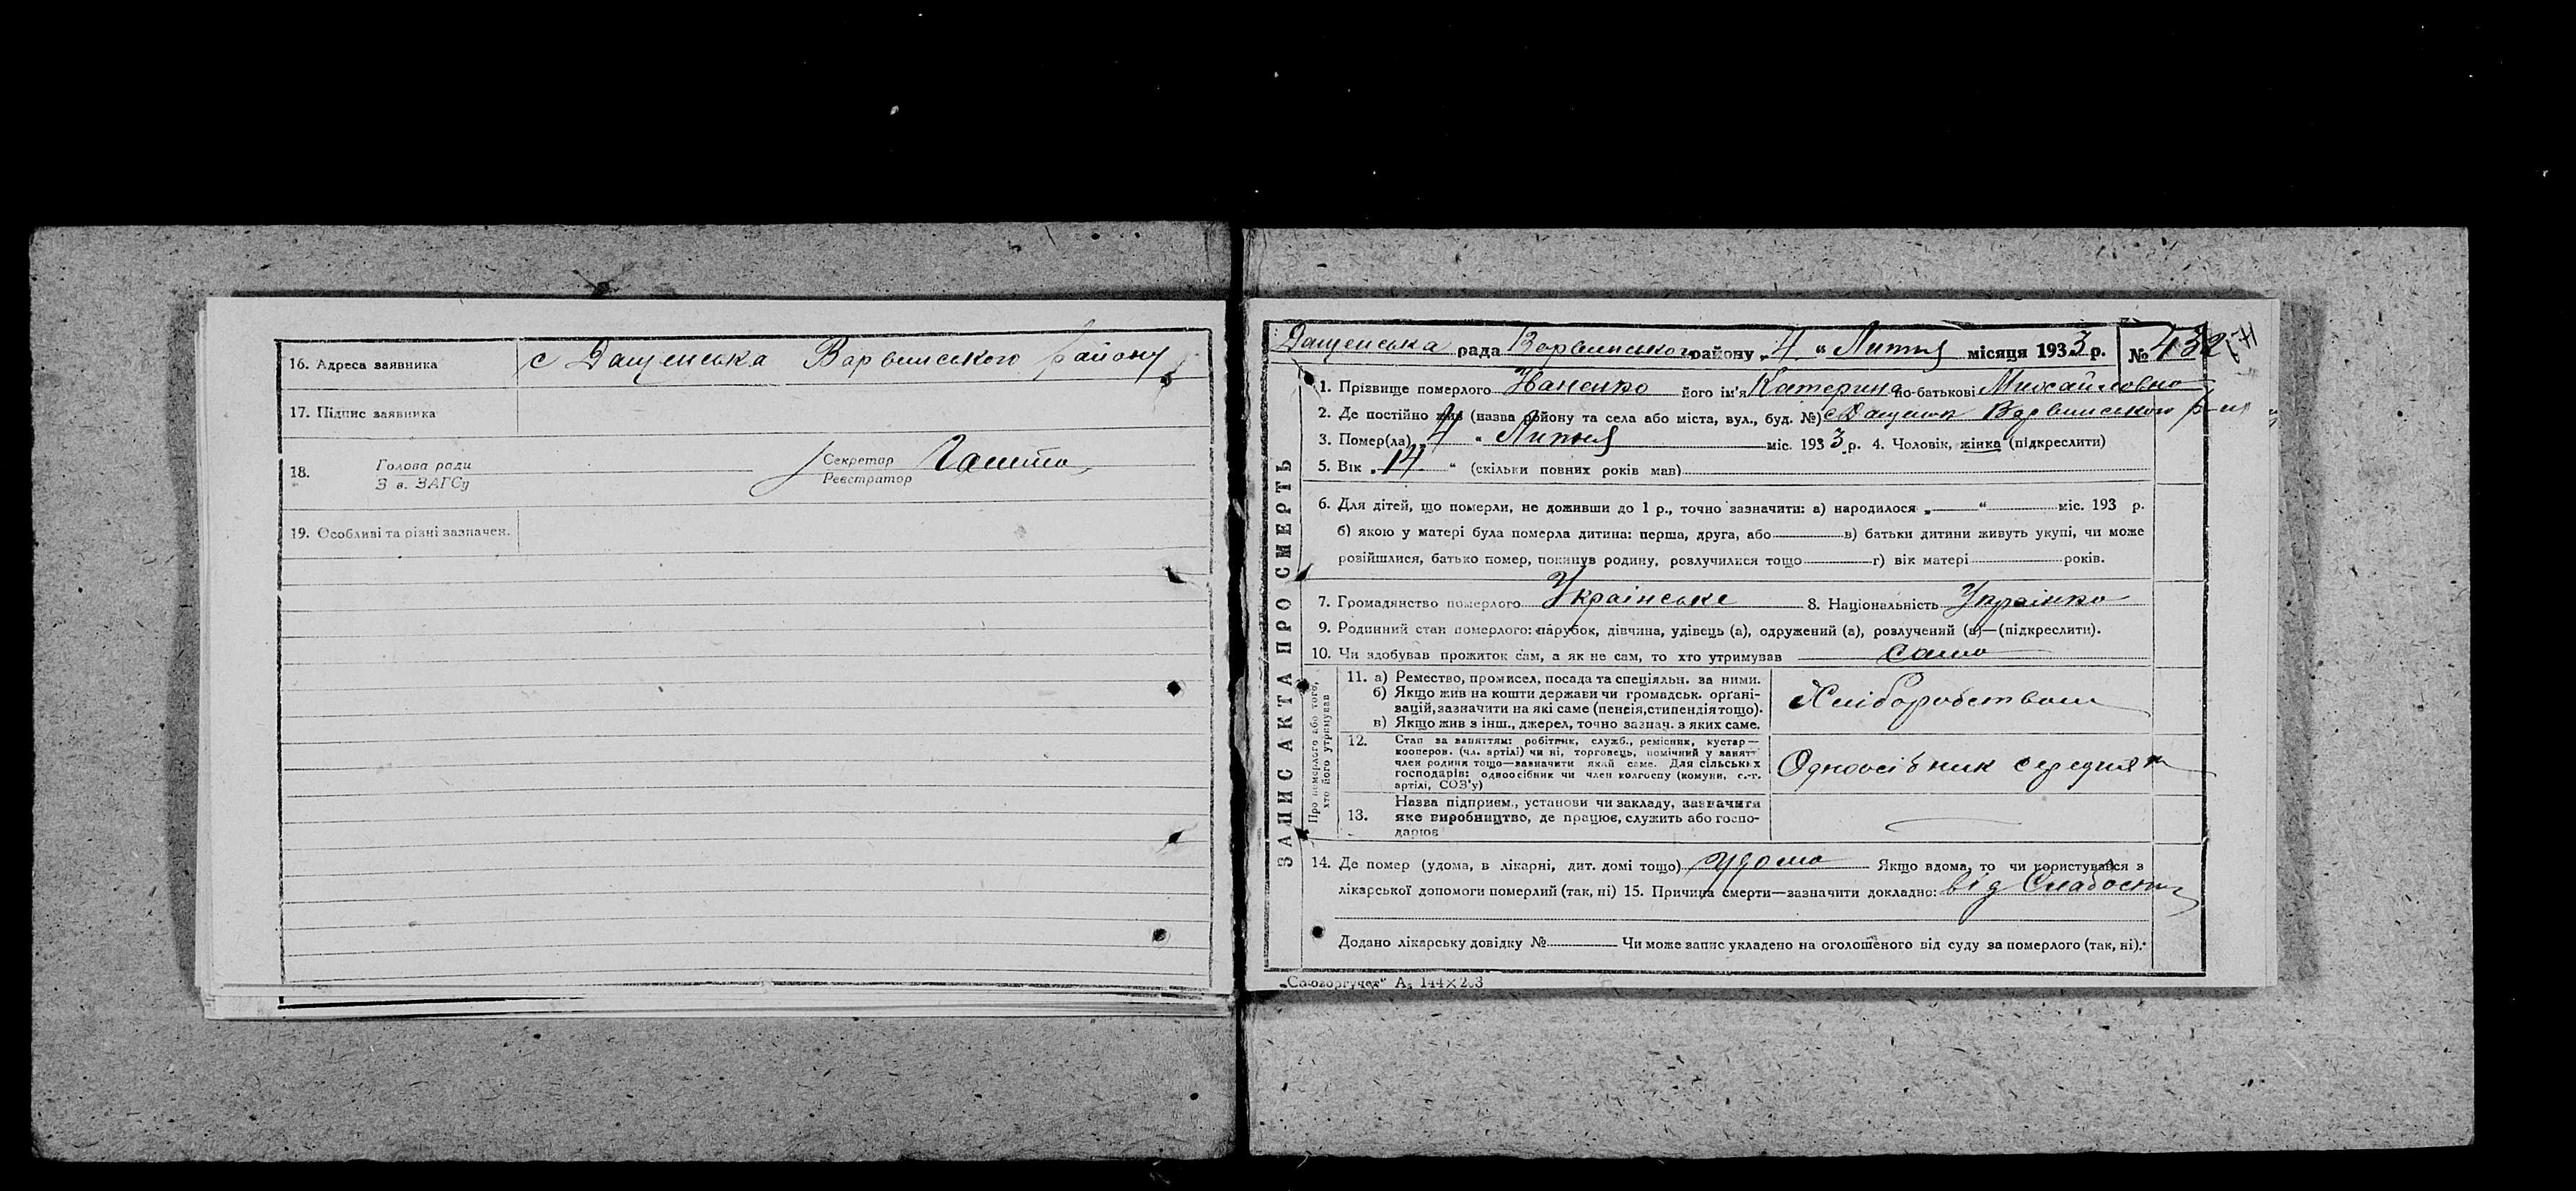 16. Адреса заявника с Дащенська Варвинського району
17. Підпис заявника
18. Голова ради Секретар
З в. ЗАГСу Реєстратор
19. Особливі та різні зазначен.
ЗАПИС АКТА ПРО СМЕРТЬ
Дащенська рада Варвинського району „4“ Липня місяця 1933 р. № 432
1. Прізвище померлого Іваненко його ім'я Катерина по-батькові Михайловна
2. Де постійно жив (назва району та села або міста, вул., буд. №) с Дащенк Варвинського р-ну
3. Помер(ла) „4“ Липня міс. 1933 р. 4. Чоловік, жінка (підкреслити)
5. Вік „14“ (скільки повних років мав)
6. Для дітей, що померли, не доживши до 1 р., точно зазначити: а) народилося „ “ міс. 193 р.
б) якою у матері була померла дитина: перша, друга, або в) батьки дитини живуть укупі, чи може
розійшлися, батько помер, покинув родину, розлучилися тощо г) вік матері років.
7. Громадянство померлого Українське 8. Національність Українка
9. Родинний стан померлого: парубок, дівчина, удівець (а), одружений (а), розлучений (а)—(підкреслити).
10. Чи здобував прожиток сам, а як не сам, то хто утримував сама
Про померлого або того, хто його утримував
11. а) Ремество, промисел, посада та спеціяльн. за ними.
б) Якщо жив на кошти держави чи громадськ. орґані-
зацій, зазначити на які саме (пенсія, стипендія тощо).
в) Якщо жив з інш., джерел, точно зазнач. з яких саме.
Хліборобством
12. Стан за заняттям: робітник, служб., ремісник, кустар—
кооперов. (чл. артілі) чи ні, торговець, помічний у занятт
член родини тощо—зазначити який саме. Для сільських
господарів: одноосібник чи член колгоспу (комуни, с.-г.
артілі, СОЗ'у)
Одноосібник середняк
13. Назва підприєм., установи чи закладу, зазначити
яке виробництво, де працює, служить або госпо-
дарює
14. Де помер (удома, в лікарні, дит. домі тощо) удома Якщо вдома, то чи користувався з
лікарської допомоги померлий (так, ні) 15. Причина смерти—зазначити докладно: від Слабости
Додано лікарську довідку № Чи може запис укладено на оголошеного від суду за померлого (так, ні).
„Союзоргучет“ А₅ 144×203